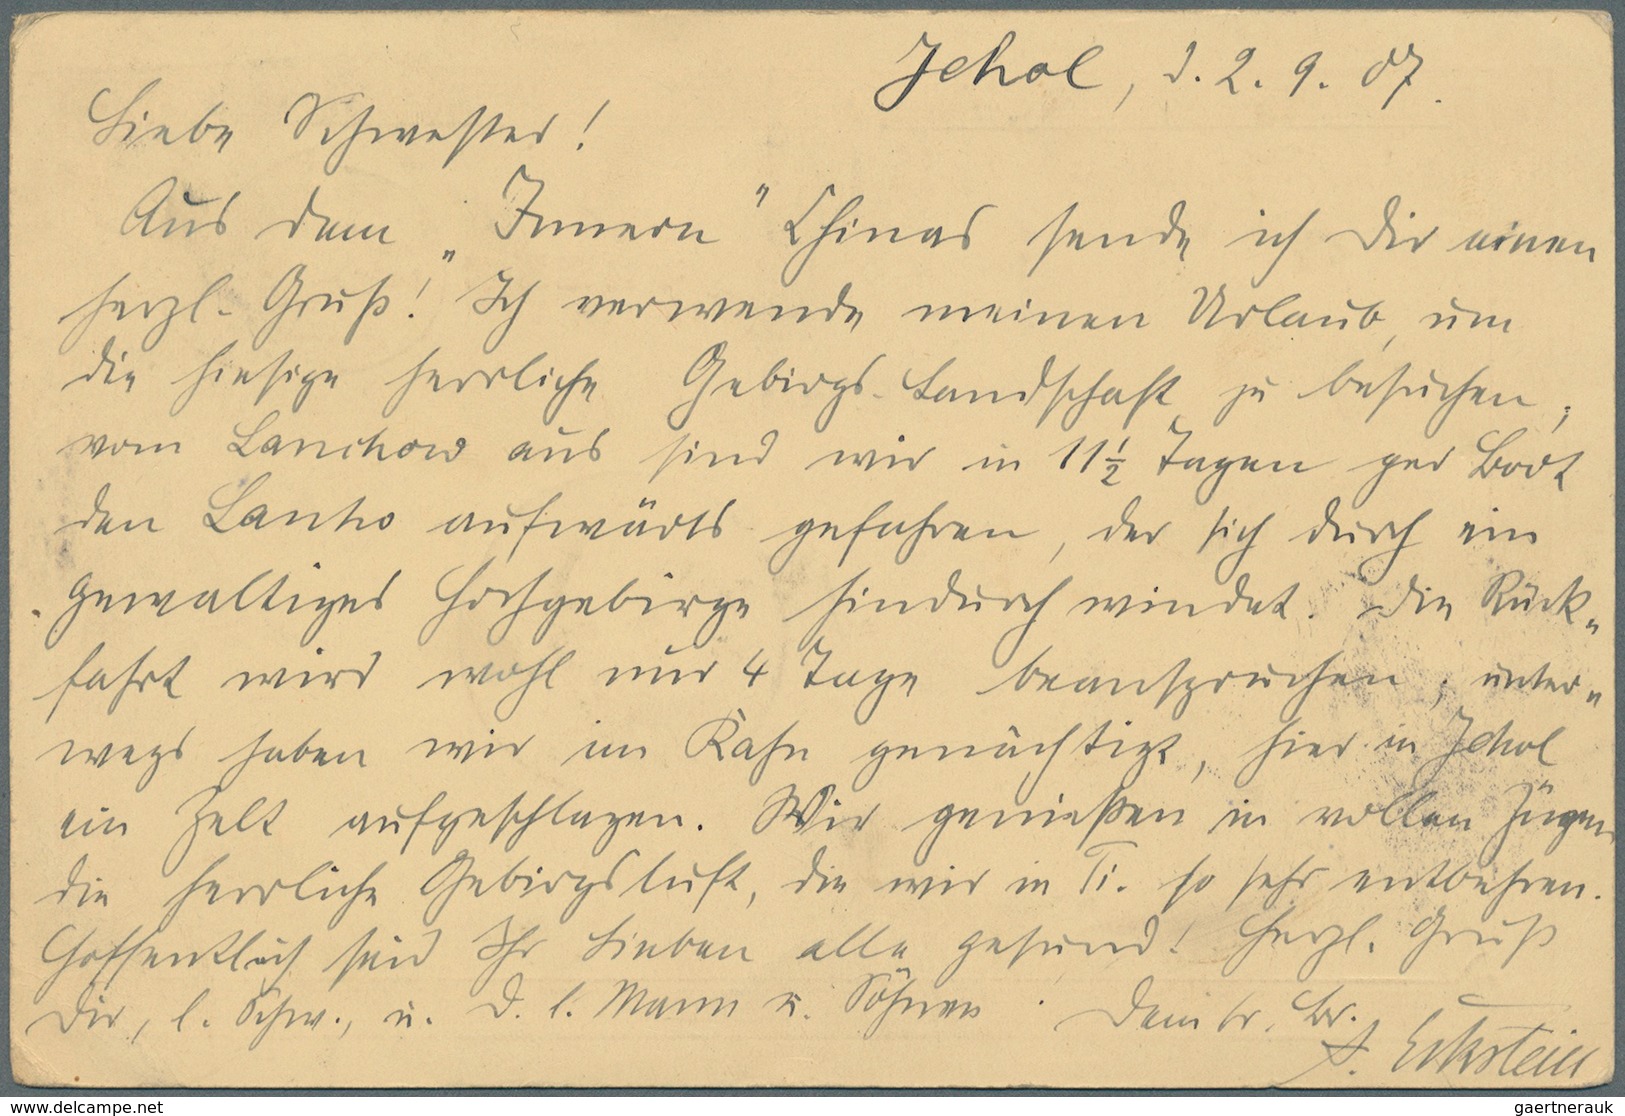 Jehol, d. 2. 9. 07.
Liebe Schwester!
Aus dem „Innern" Chinas sende ich Dir einen
herzl. Gruß! Ich verwende meinen Urlaub, um
die hiesige herrliche Gebirgs-Landschaft zu besuchen;
vom Lanchow aus sind wir in 11½ Tagen per Boot
den Lanho aufwärts gefahren, der sich durch ein
gewaltiges Hochgebirge hindurch windet. Die Rück„
fahrt wird wohl nur 4 Tage beanspruchen; unter„
wegs haben wir im Kahn genächtigt, hier in Jehol
ein Zelt aufgeschlagen. Wir genießen in vollen Zügen
die herrliche Gebirgsluft, die wir in Ti. so sehr entbehren.
Hoffentlich seid Ihr Lieben alle gesund! Herzl. Gruß
Dir, l. Schw., u. D. l. Mann u. Söhnen! Dein tr. Br.
A. Eckstein
gaertnerauk